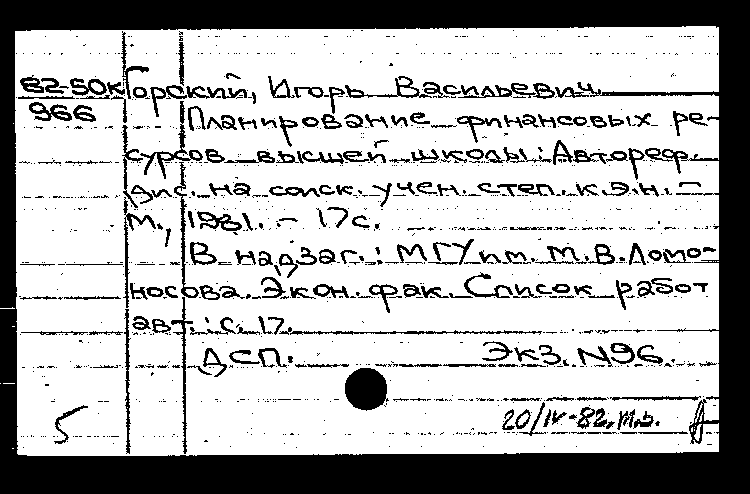 82-50к Горский, Игорь Васильевич.
966 Планирование финансовых ре-
сурсов высшей школы: Автореф.
дис. на соиск. учен. степ. к.э.н. –
М., 1981. – 17с.
В надзаг.: МГУ им. М.В. Ломо-
носова. Экон. фак. Список работ
авт.: с. 17.
ДСП. Экз. N96.
5 20/IV-82.